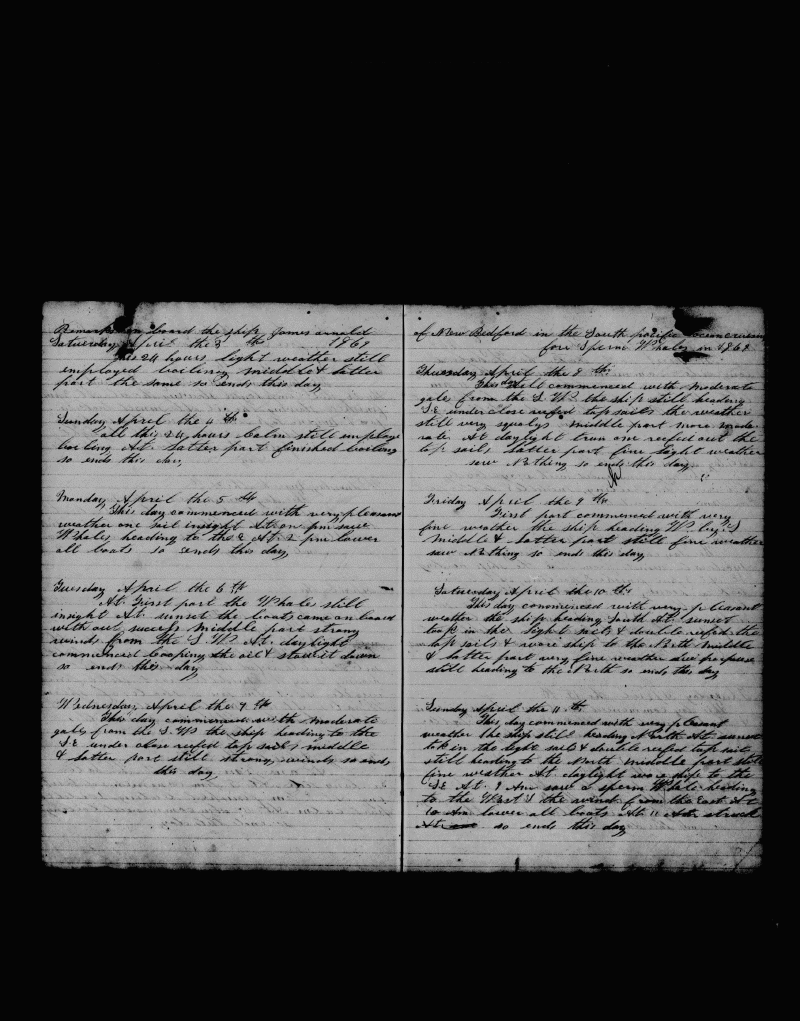 Remarks on board the ship James arnold
Saturday April the 3 th 1869
this 24 hours light weather still
employed boileing middle & latter
part the same so ends this day
Sunday April the 4 th
all this 24 hours Calm still imploye
boileing At latter part finished boileng
so ends this day
Monday April the 5 th
This day commenced with very pleasant
weather one sail insight At on pm saw
Whales heading to the E At 2 pm lower
all boats so ends this day
Tuesday April the 6 th
At First part the Whales still
insight At sunset the boats came on board
without sucerss middle part strong
winds from the S.W At daylight
commenced cooping the oil & stowd it down
so ends this day
Wednesday April the 7 th
This day commenced with moderate
gales from the S W the ship heading to the
S.E under close reefed top sails middle
& latter part still strong winds so ends
this day
of New Bedford in the South pacific Ocean
fore Sperm Whales in 1869
Thuesday April the 8 th
This commenced with moderate
gales from the S.W. the ship still heading
S.E under close reefed top sails the weather
still very squaly middle part more mode
rate At daylight trun one reef out the
top sails latter part fine light weather
saw Nothing so ends this day
Friday April the 9 th
First part commenced with very
fine weather the ship heading W. by S
middle & latter part still fine weather
saw Nothing so ends this day
Saturday April the 10 th
This day commenced with very pleasant
weather the ship heading South At sunset
took in the light sails & double reefed the
top sails & wore ship to the North middle
& latter part very fine weather
still heading to the North so ends this day
Sunday April the 11 th
This day commenced with very pleasant
weather the ship still heading North At sunset
tok in the light sails & double reefed top sail
still heading to the North middle part still
fine weather At daylight wore ship to the
S.E At 9 Am saw a sperm Whale heading
to the West the wind from the East At
10 Am lower all boats At 11 Am struck
so ends this day